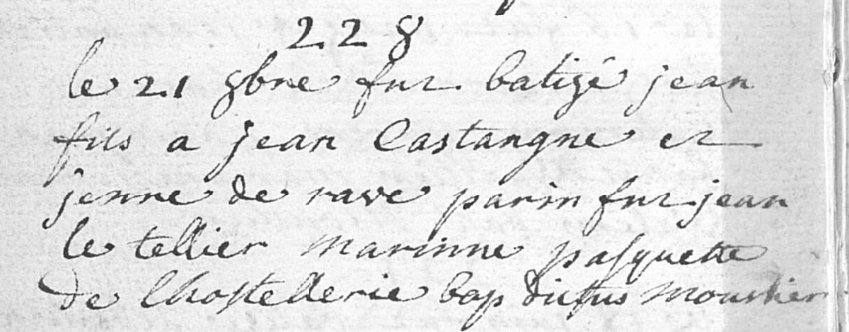 228
le 21 gbre fut batizé jean
fils a jean Castangne et
jenne de rave parin fut jean
le tellier marinne pasquette
de lhostellerie bap dictus moustier